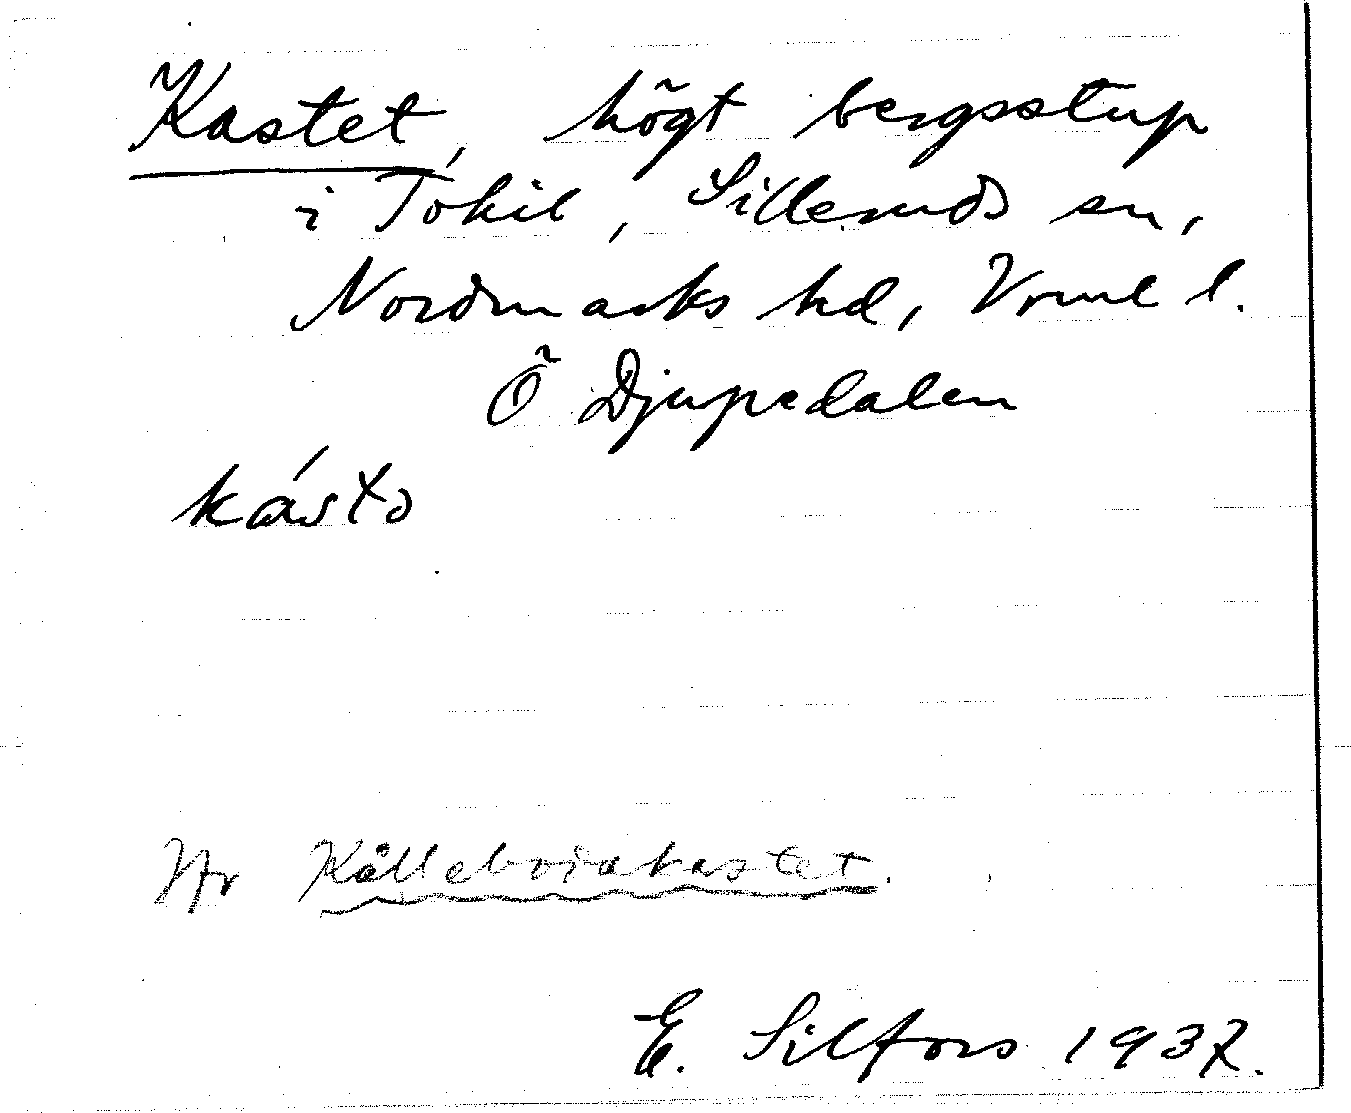 Kastet, högt bergsstup
i Tokil, Sillerunds sn,
Nordmarks hd, Vrml l.
Ö Djupedalen
kásto
Jfr Kålleboiakastet.
E. Silfors 1937.